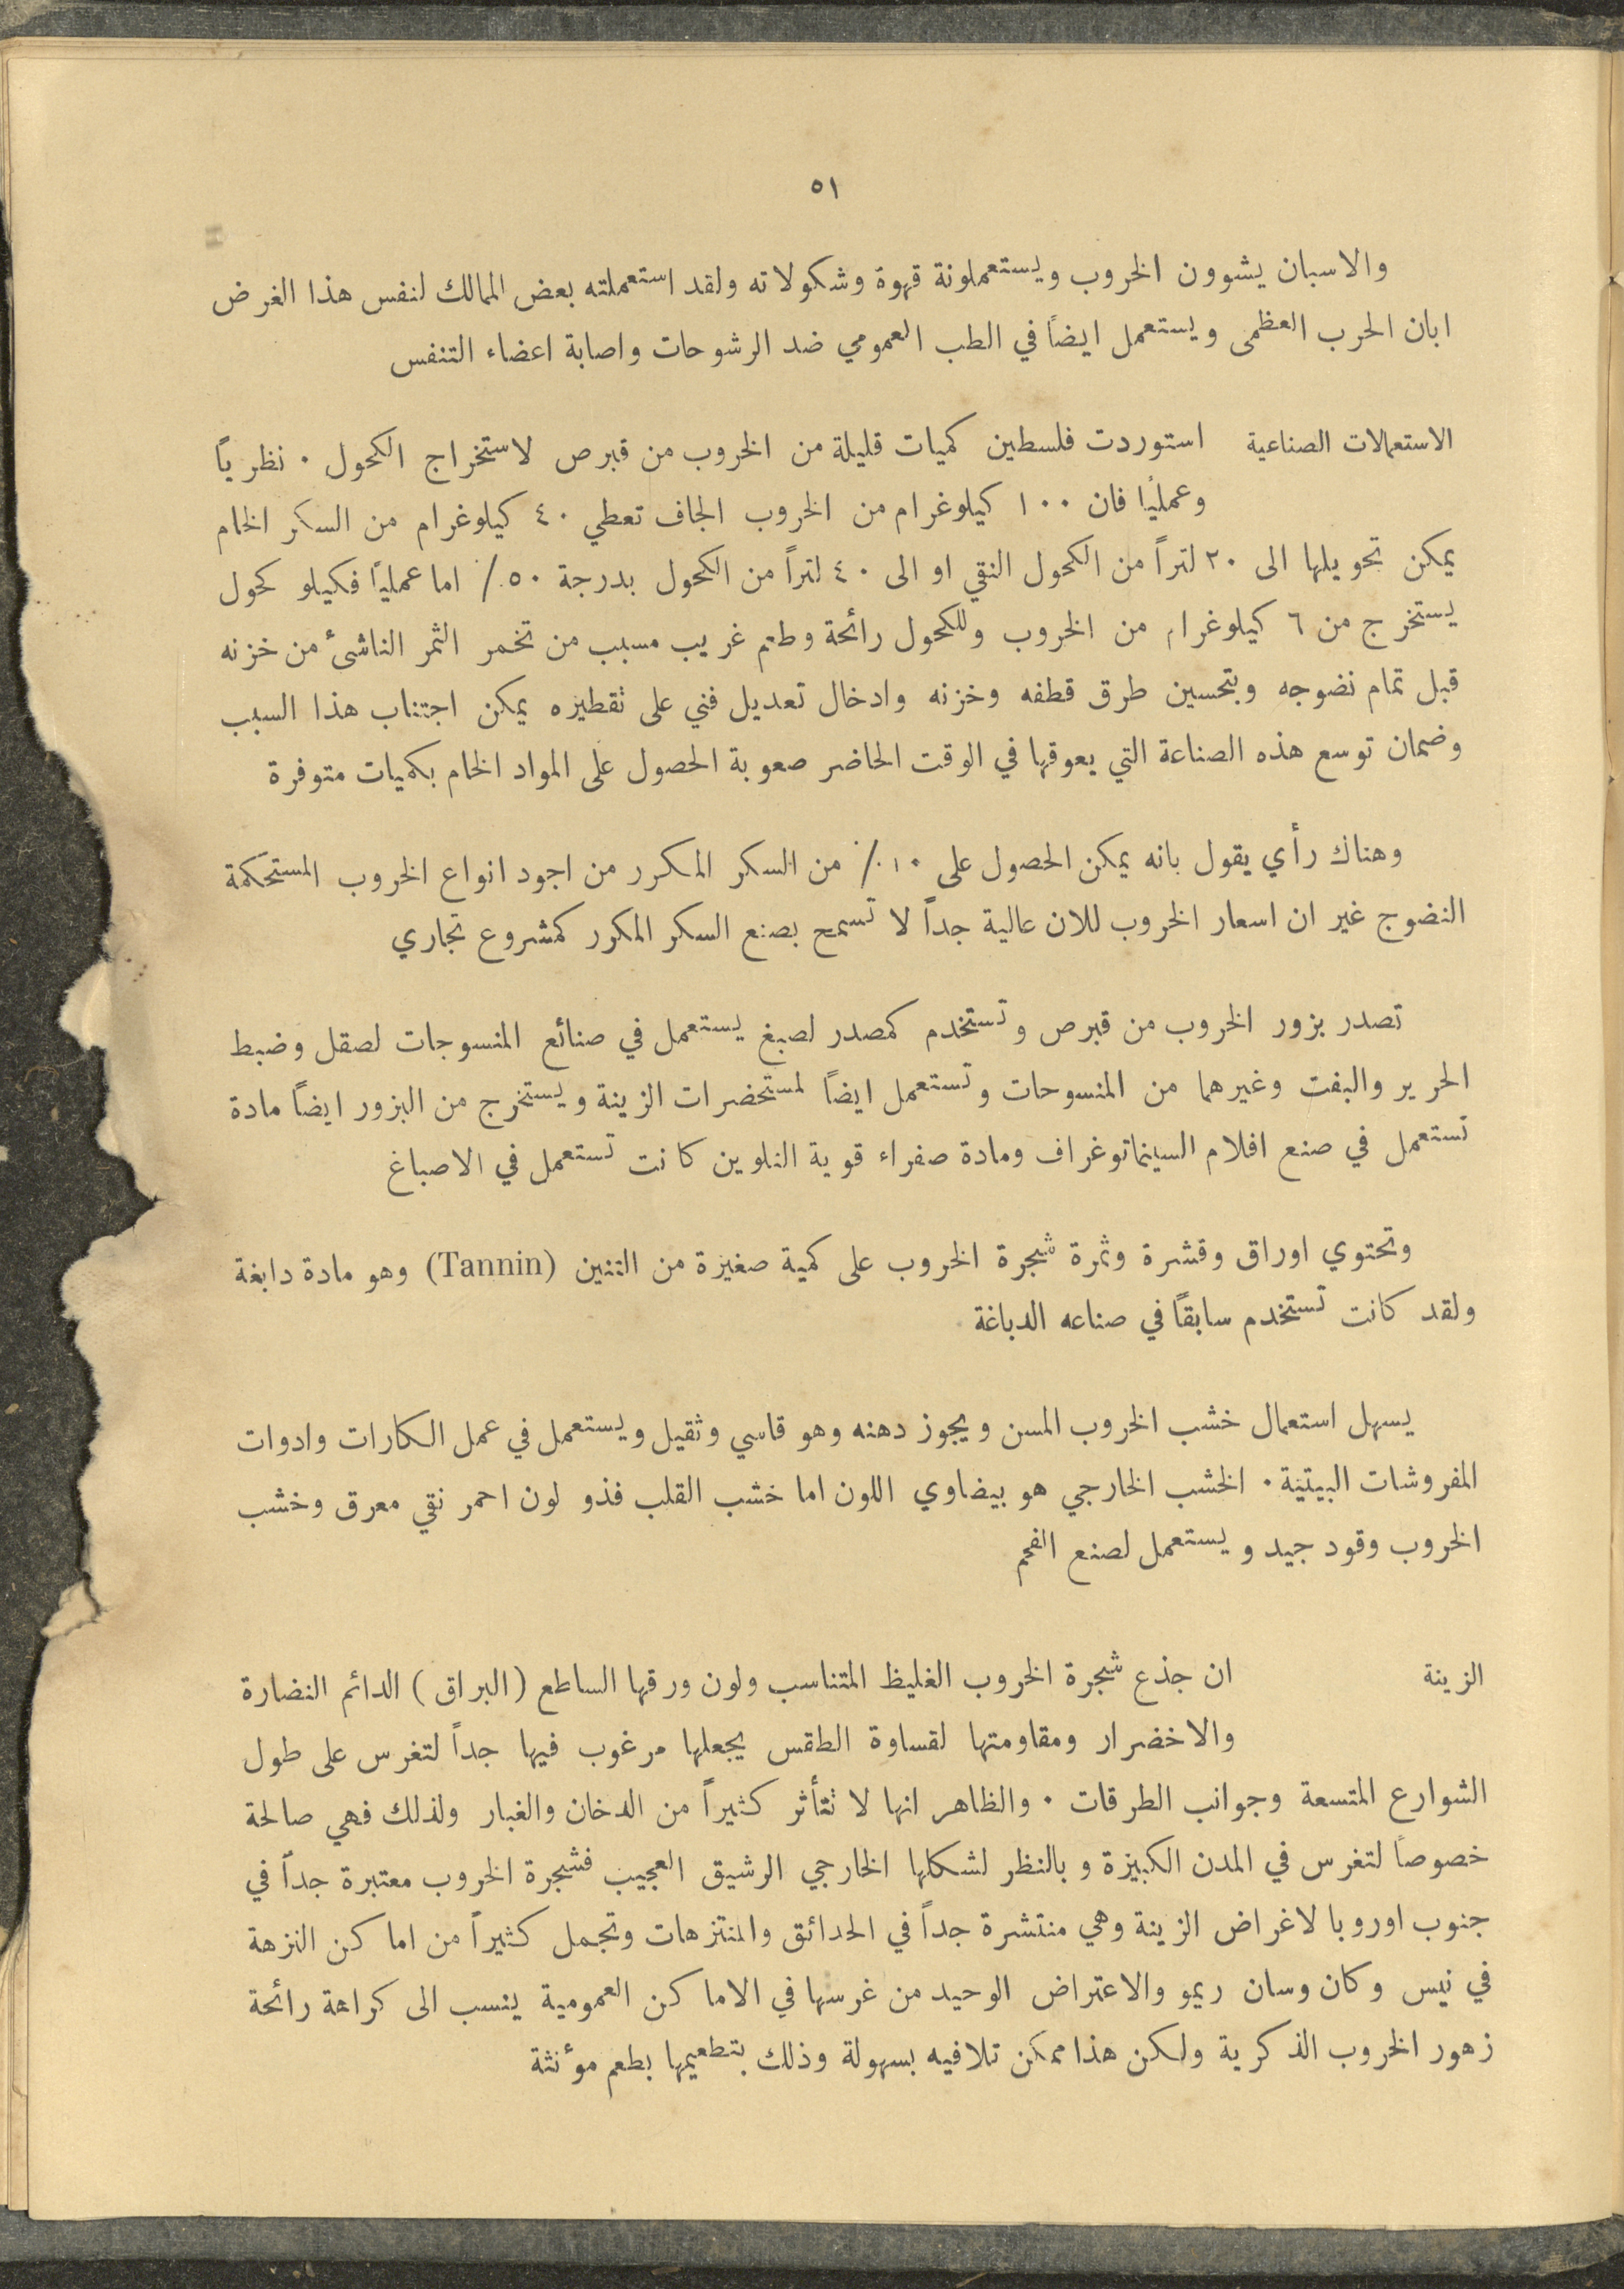 ٥١
والاسبان يشوون الخروب ويستعملونة قهوة وشكولاته ولقد استعملته بعض الممالك لنفس هذا الغرض
ابان الحرب العظمى ويستعمل ايضاً في الطب العمومي ضد الرشوحات واصابة اعضاء التنفس
الاستعمالات الصناعية استوردت فلسطين كميات قليلة من الخروب من قبرص لاستخراج الكحول . نظرياً
وعملياً فان ١٠٠ كيلوغرام من الخروب الجاف تعطي ٤٠ كيلوغرام من السكر الخام
يمكن تحويلها الى ٢٠ لتراً من الكحول النقي او الى ٤٠ لتراً من الكحول بدرجة ٥٠٪ اما عملياً فكيلو كحول
يستخرج من ٦ كيلوغرام من الخروب وللكحول رائحة وطعم غريب مسبب من تخمر الثمر الناشئ من خزنه
قبل تمام نضوجه وبتحسين طرق قطفه وخزنه وادخال تعديل فني على تقطيره يمكن اجتناب هذا السبب
وضمان توسع هذه الصناعة التي يعوقها في الوقت الحاضر صعوبة الحصول على المواد الخام بكميات متوفرة
وهناك رأي يقول بانه يمكن الحصول على ١٠٪ من السكر المكرر من اجود انواع الخروب المستحكمة
النضوج غير ان اسعار الخروب للان عالية جداً لا تسمح بصنع السكر المكرر كمشروع تجاري
تصدر بزور الخروب من قبرص وتستخدم كمصدر لصبغ يستعمل في صنائع المنسوجات لصقل وضبط
الحرير والبفت وغيرهما من المنسوحات وتستعمل ايضاً لمستحضرات الزينة ويستخرج من البزور ايضاً مادة
تستعمل في صنع افلام السينماتوغراف ومادة صفراء قوية التلوين كانت تستعمل في الاصباغ
وتحتوي اوراق وقشرة وثمرة شجرة الخروب على كمية صغيرة من التنين (Tannin) وهو مادة دابغة
ولقد كانت تستخدم سابقاً في صناعه الدباغة
يسهل استعمال خشب الخروب المسن ويجوز دهنه وهو قاسي وثقيل ويستعمل في عمل الكارات وادوات
المفروشات البيتية . الخشب الخارجي هو بيضاوي اللون اما خشب القلب فذو لون احمر نقي معرق وخشب
الخروب وقود جيد ويستعمل لصنع الفحم
الزينة ان جذع شجرة الخروب الغليظ المتناسب ولون ورقها الساطع (البراق) الدائم النضارة
والاخضرار ومقاومتها لقساوة الطقس يجعلها مرغوب فيها جداً لتغرس على طول
الشوارع المتسعة وجوانب الطرقات . والظاهر انها لا تتأثر كثيراً من الدخان والغبار ولذلك فهي صالحة
خصوصاً لتغرس في المدن الكبيرة وبالنظر لشكلها الخارجي الرشيق العجيب فشجرة الخروب معتبرة جداً في
جنوب اوروبا لاغراض الزينة وهي منتشرة جداً في الحدائق والمنتزهات وتجمل كثيراً من اماكن النزهة
في نيس وكان وسان ريمو والاعتراض الوحيد من غرسها في الاماكن العمومية ينسب الى كراهة رائحة
زهور الخروب الذكرية ولكن هذا ممكن تلافيه بسهولة وذلك بتطعيمها بطعم مؤنثة